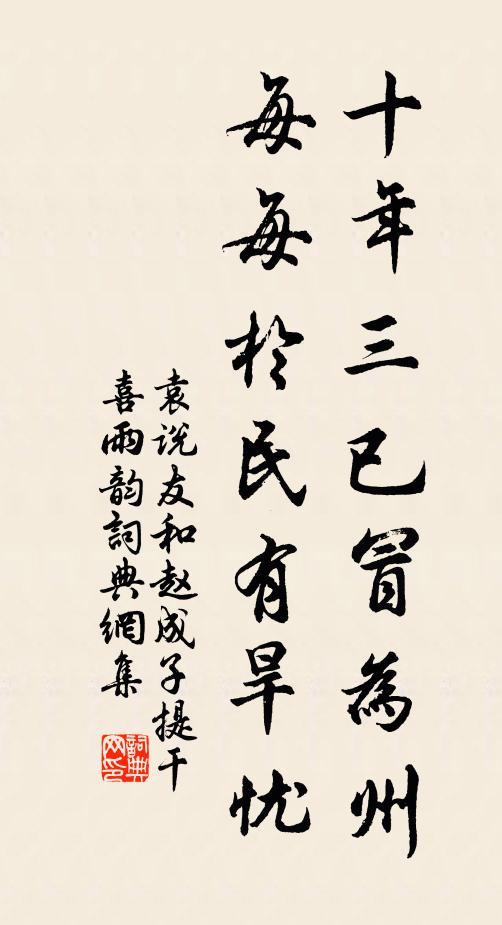 十年三已冒為州
每每於民有旱忧
袁说友和赵成子提干
喜雨韵詞典網集
詞典网印